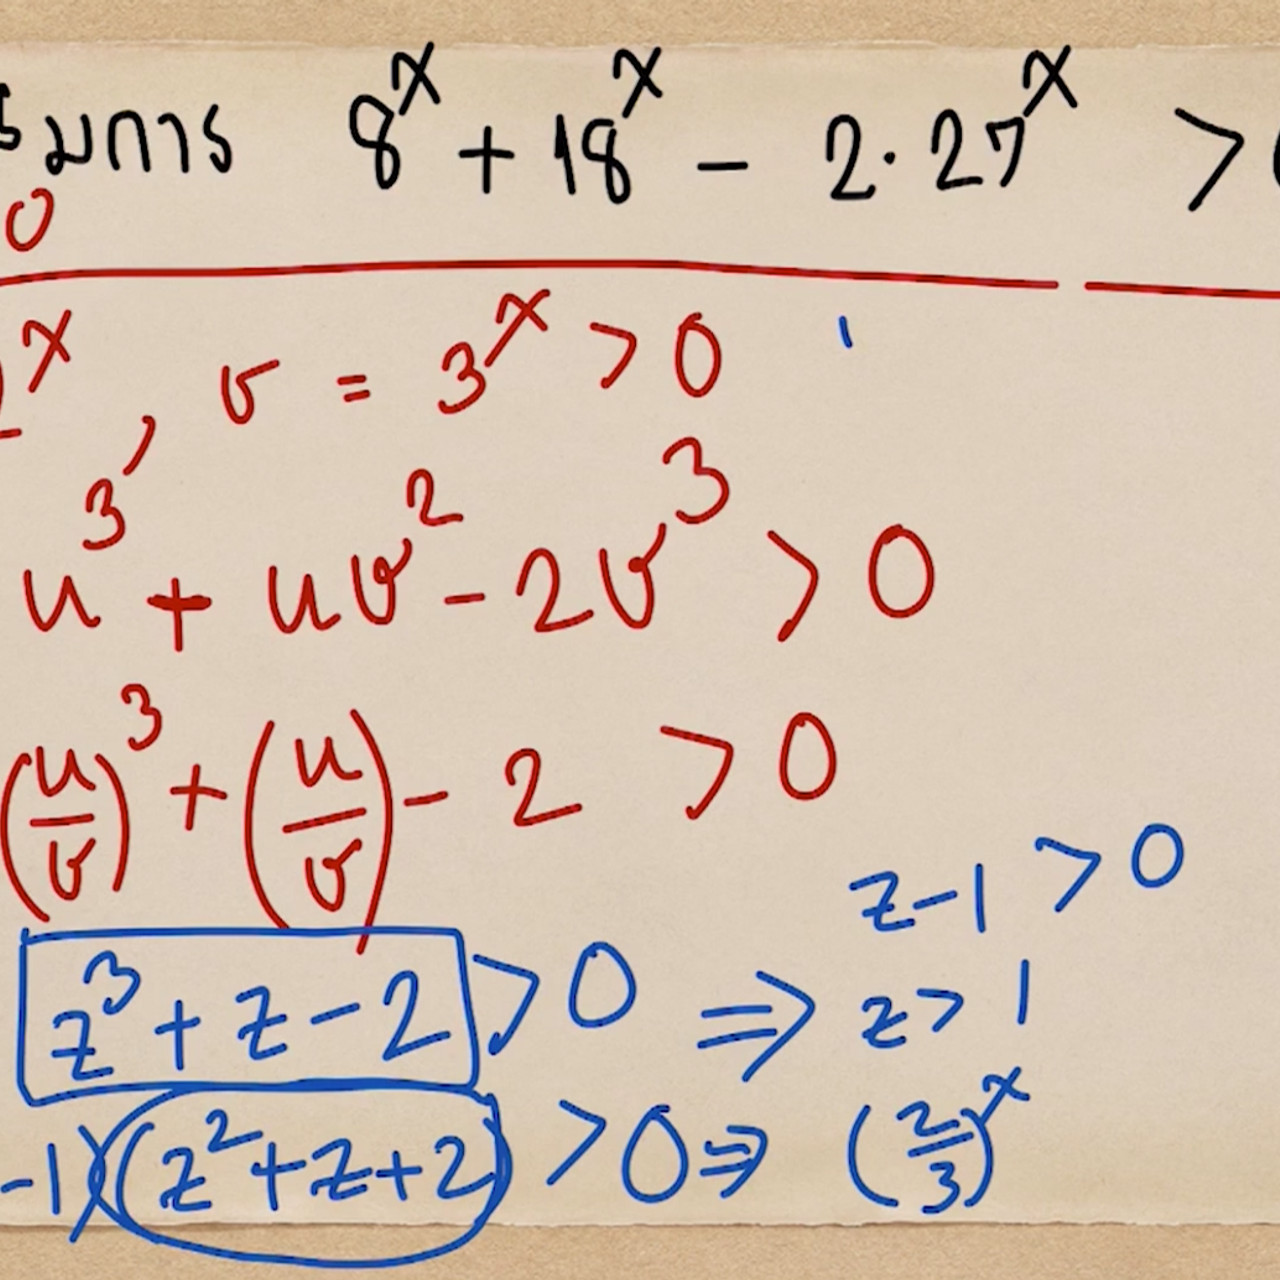 สมการ 8^x + 18^x - 2·27^x >
0
2^x, v = 3^x > 0
u^3 + uv^2 - 2v^3 > 0
(u/v)^3 + (u/v) - 2 > 0
z - 1 > 0
z^3 + z - 2 > 0 ⇒ z > 1
-1)(z^2 + z + 2) > 0 ⇒ (2/3)^x